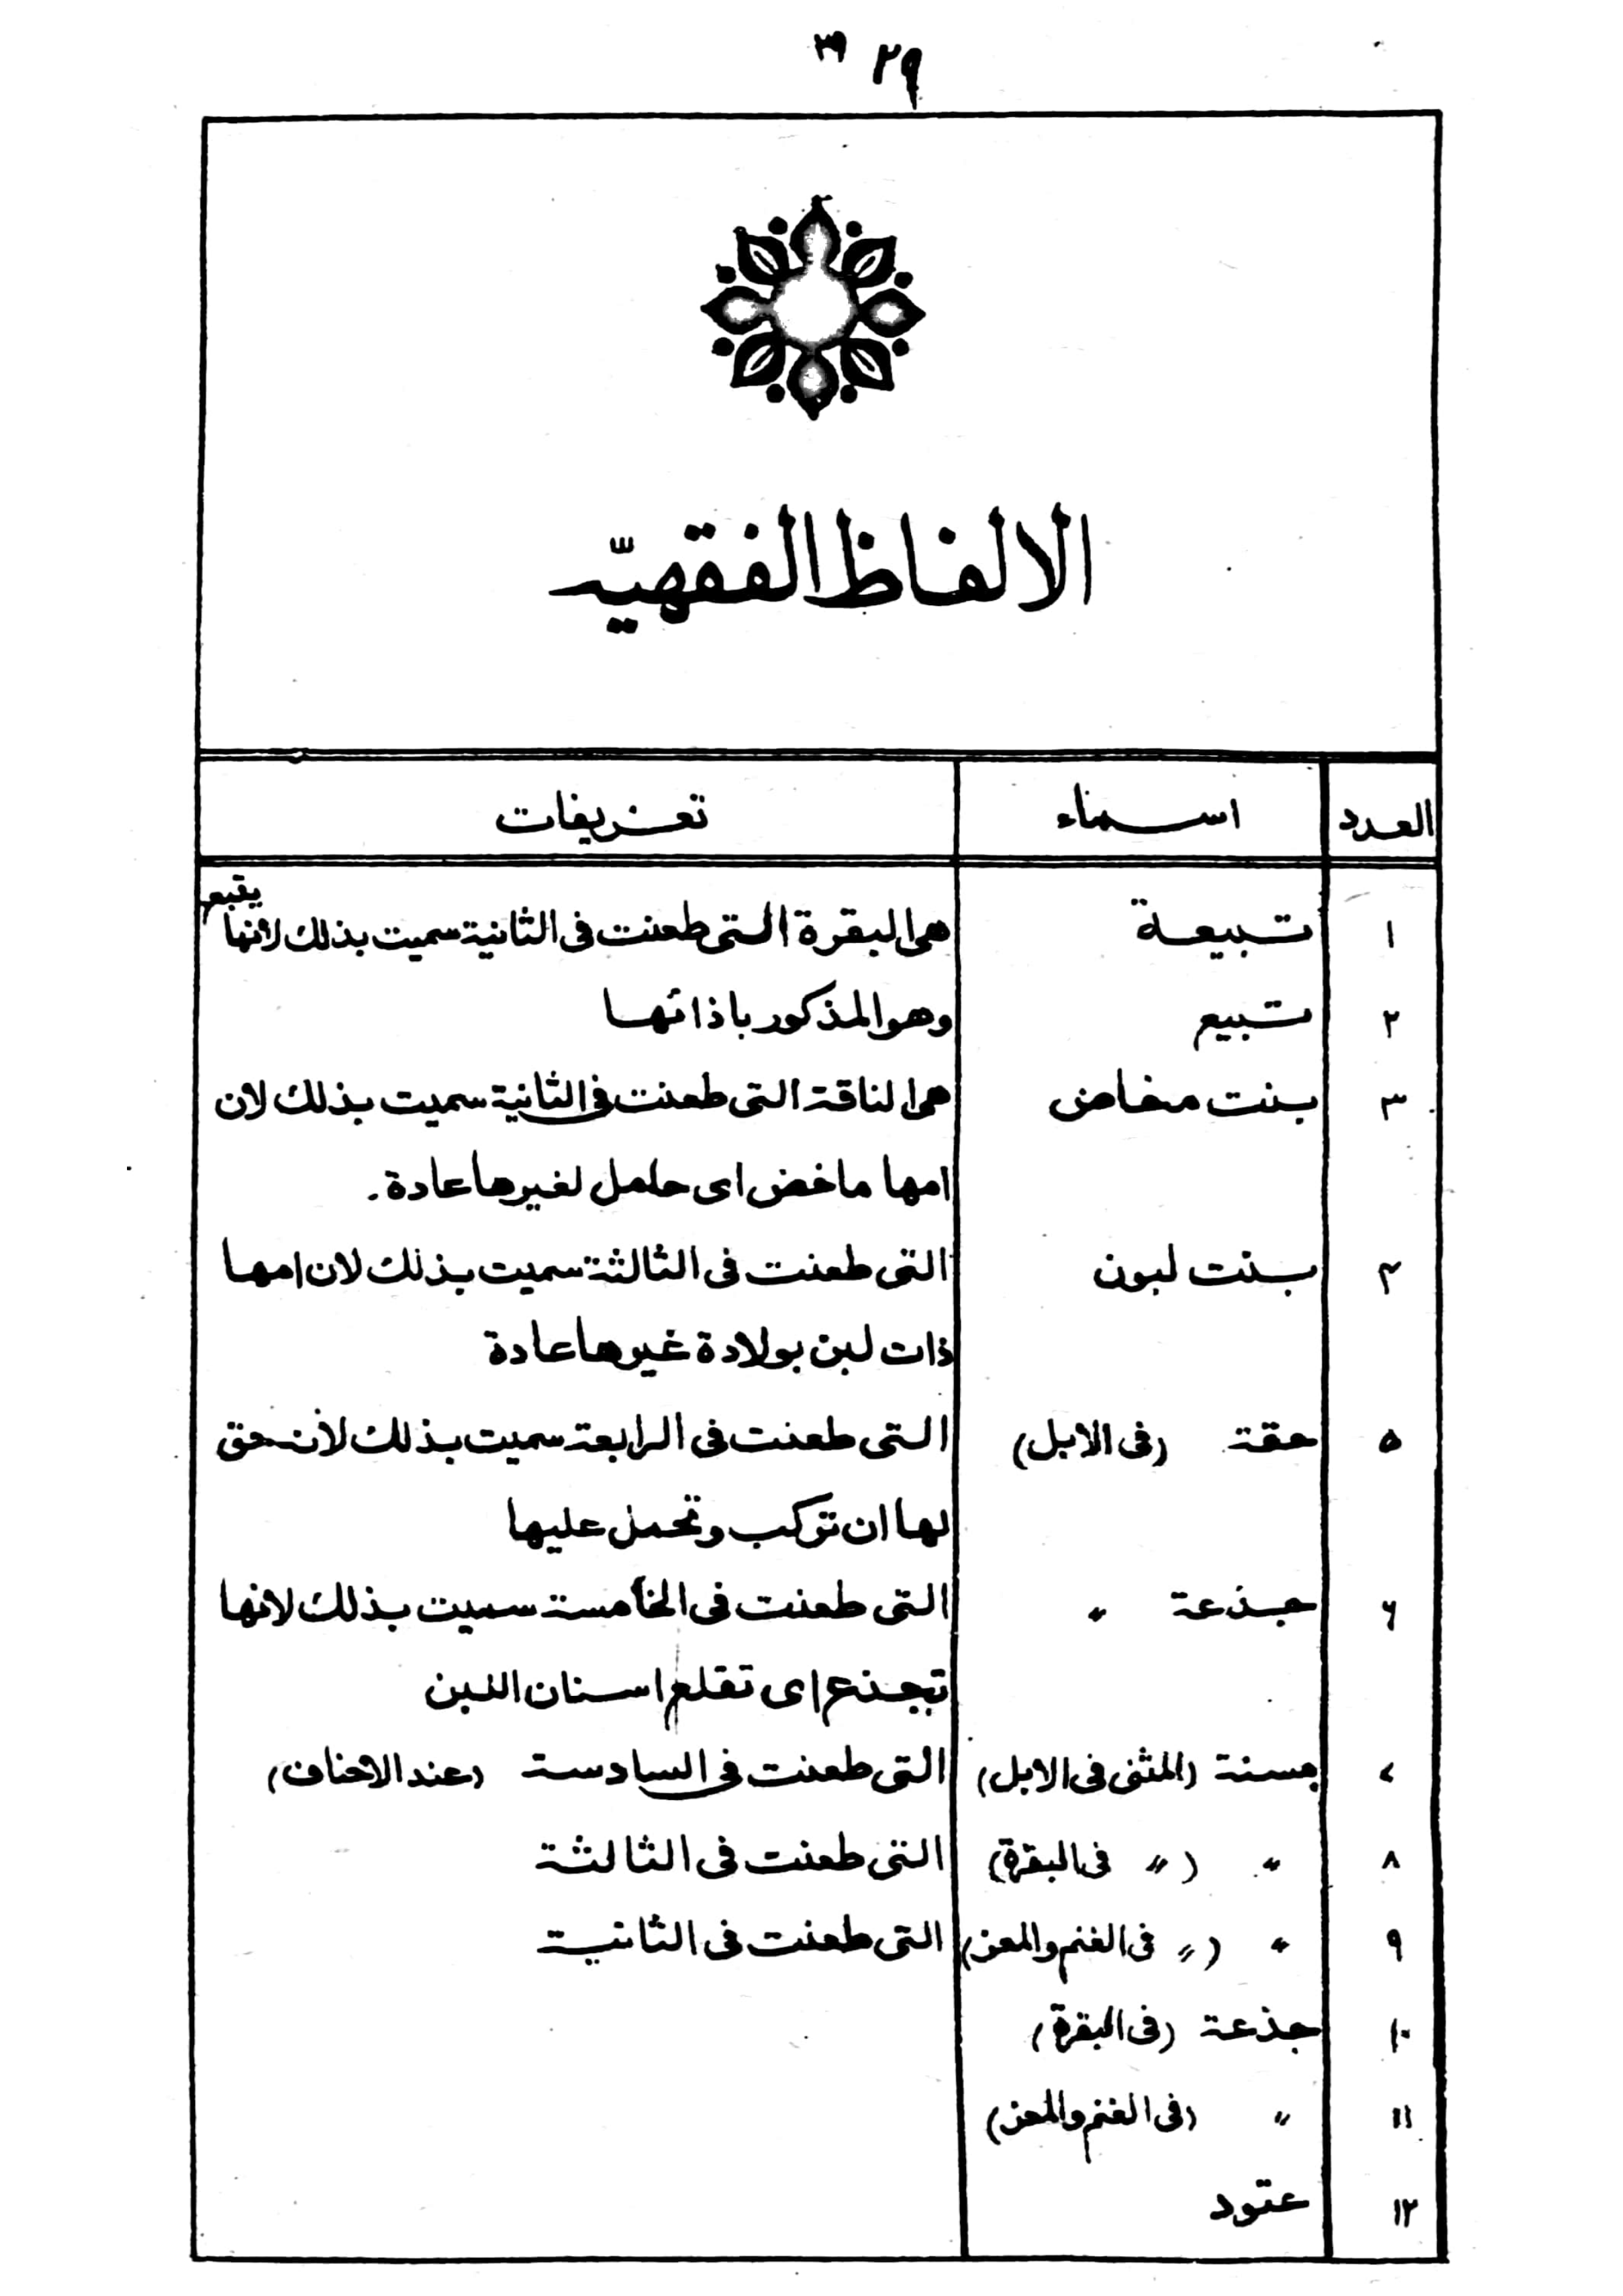 ٣٩ ٢٩
الالفاظ الفقهيّه
العدد اسماء تعريفات
١ تبيعة هى البقرة التى طعنت فى الثانية سميت بذلك لانها يتبع
٢ تبيع وهو المذكور باذائها
٣ بنت مخاض هى الناقة التى طعنت فى الثانية سميت بذلك لان
امها ماخض اى حامل لغيرها عادة.
٤ بنت لبون التى طعنت فى الثالثة سميت بذلك لان امها
ذات لبن بولادة غيرها عادة
٥ حقة (فى الابل) التى طعنت فى الرابعة سميت بذلك لأن حق
لها ان تركب وتحمل عليها
۶ جذعة 〃 التى طعنت فى الخامسة سميت بذلك لانها
تجذع اى تقلع اسنان اللبن
٧ مسنة (المثنى فى الابل) التى طعنت فى السادسة (عند الاحناف)
٨ 〃 (〃 فى البقرة) التى طعنت فى الثالثة
٩ 〃 (〃 فى الغنم والمعز) التى طعنت فى الثانية
١٠ جذعة (فى البقرة)
١١ 〃 (فى الغنم والمعز)
١٢ عتود